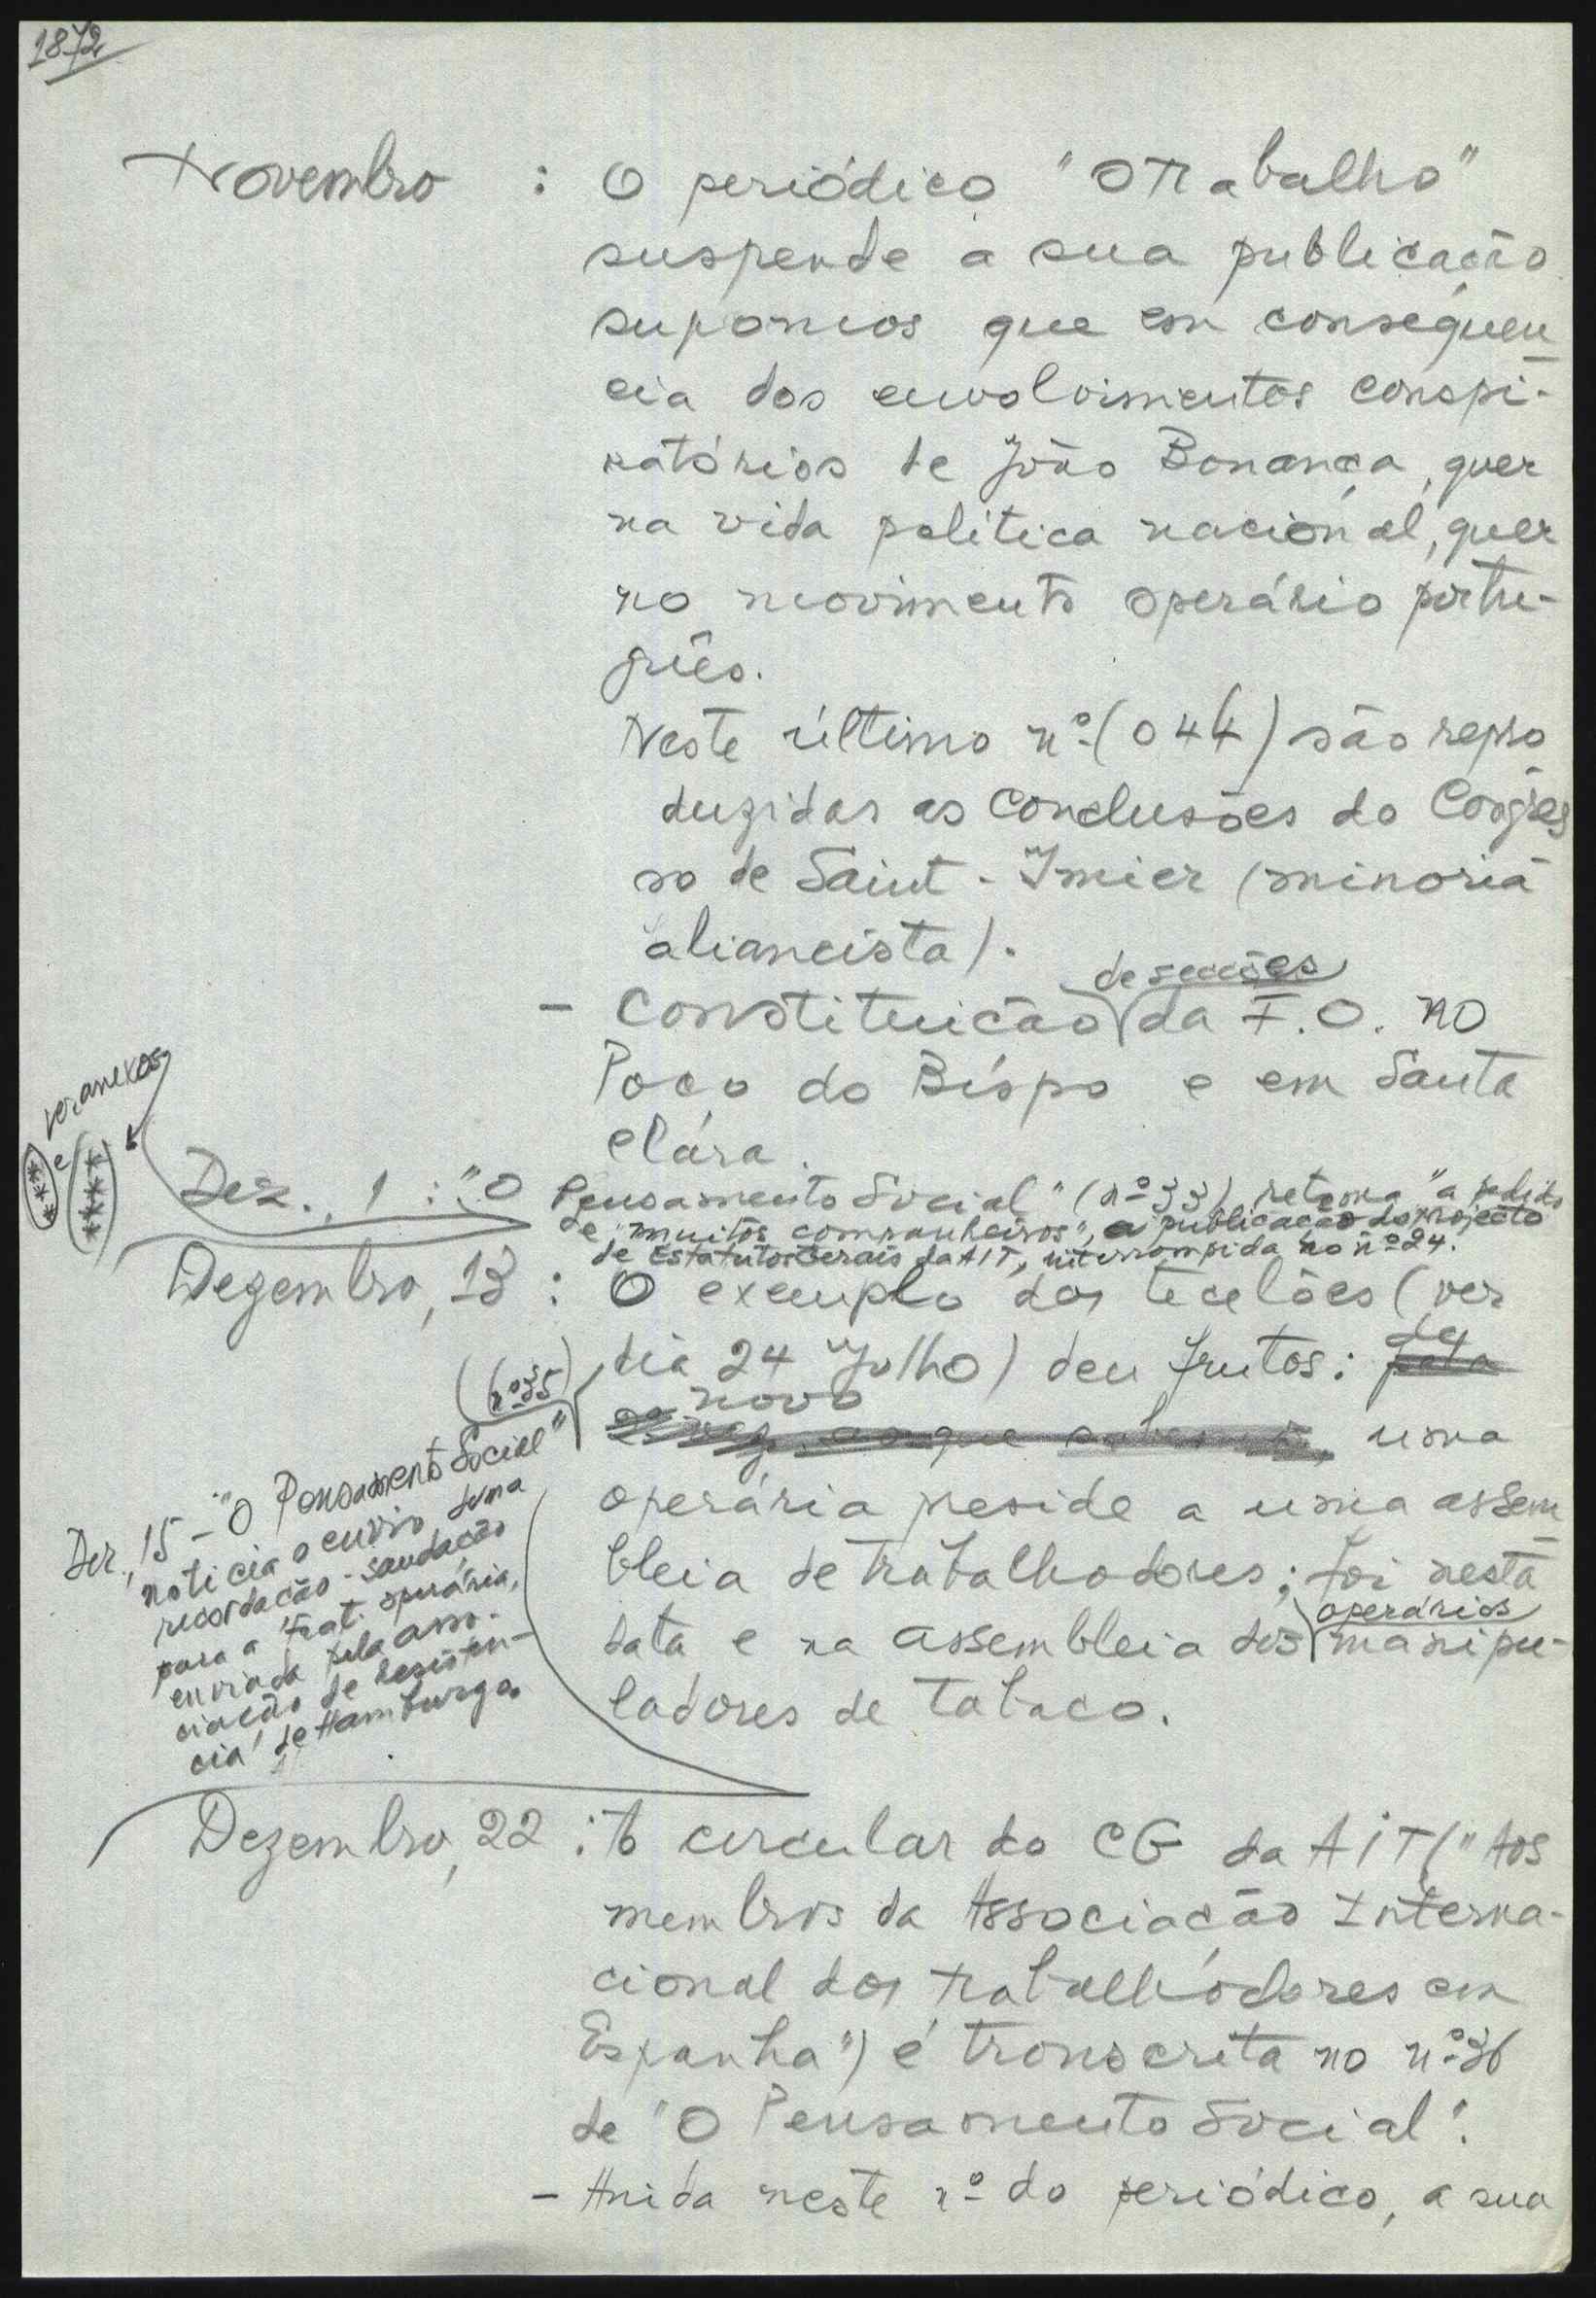 1872
Novembro : O periódico "O Trabalho"
suspende a sua publicação
supomos que em consequen
cia dos envolvimentos conspi-
ratórios de João Bonança, quer
na vida política nacional, quer
no movimento operário portu-
guês.
Neste último nº (o 44) são repro
duzidas as conclusões do Congres
so de Saint-Imier (minoria
aliancista).
de secções
- Constituição da F.O. no
Poço do Bispo e em Santa
Clara.
ver anexos
*** e ****
Dez., 1 : "O Pensamento Social" (nº 33) retoma "a pedido
de "muitos companheiros", a publicação do projecto
de Estatutos Gerais da AIT, interrompida no nº 24.
Dezembro, 13 : O exemplo dos tecelões (ver
dia 24 Julho) deu frutos: de
novo
uma
operária preside a uma assem
bleia de trabalhadores; foi nesta
operários
data e na assembleia dos manipu-
ladores de tabaco.
(nº 35)
Dez., 15 - "O Pensamento Social"
noticia o envio duma
recordação-saudação
para a Frat. operária,
enviada pela asso-
ciação de resistên-
cia de Hamburgo.
Dezembro, 22 : A circular do CG da AIT ("Aos
membros da Associação Interna-
cional dos trabalhadores em
Espanha") é transcrita no nº 36
de "O Pensamento Social".
- Ainda neste nº do periódico, a sua